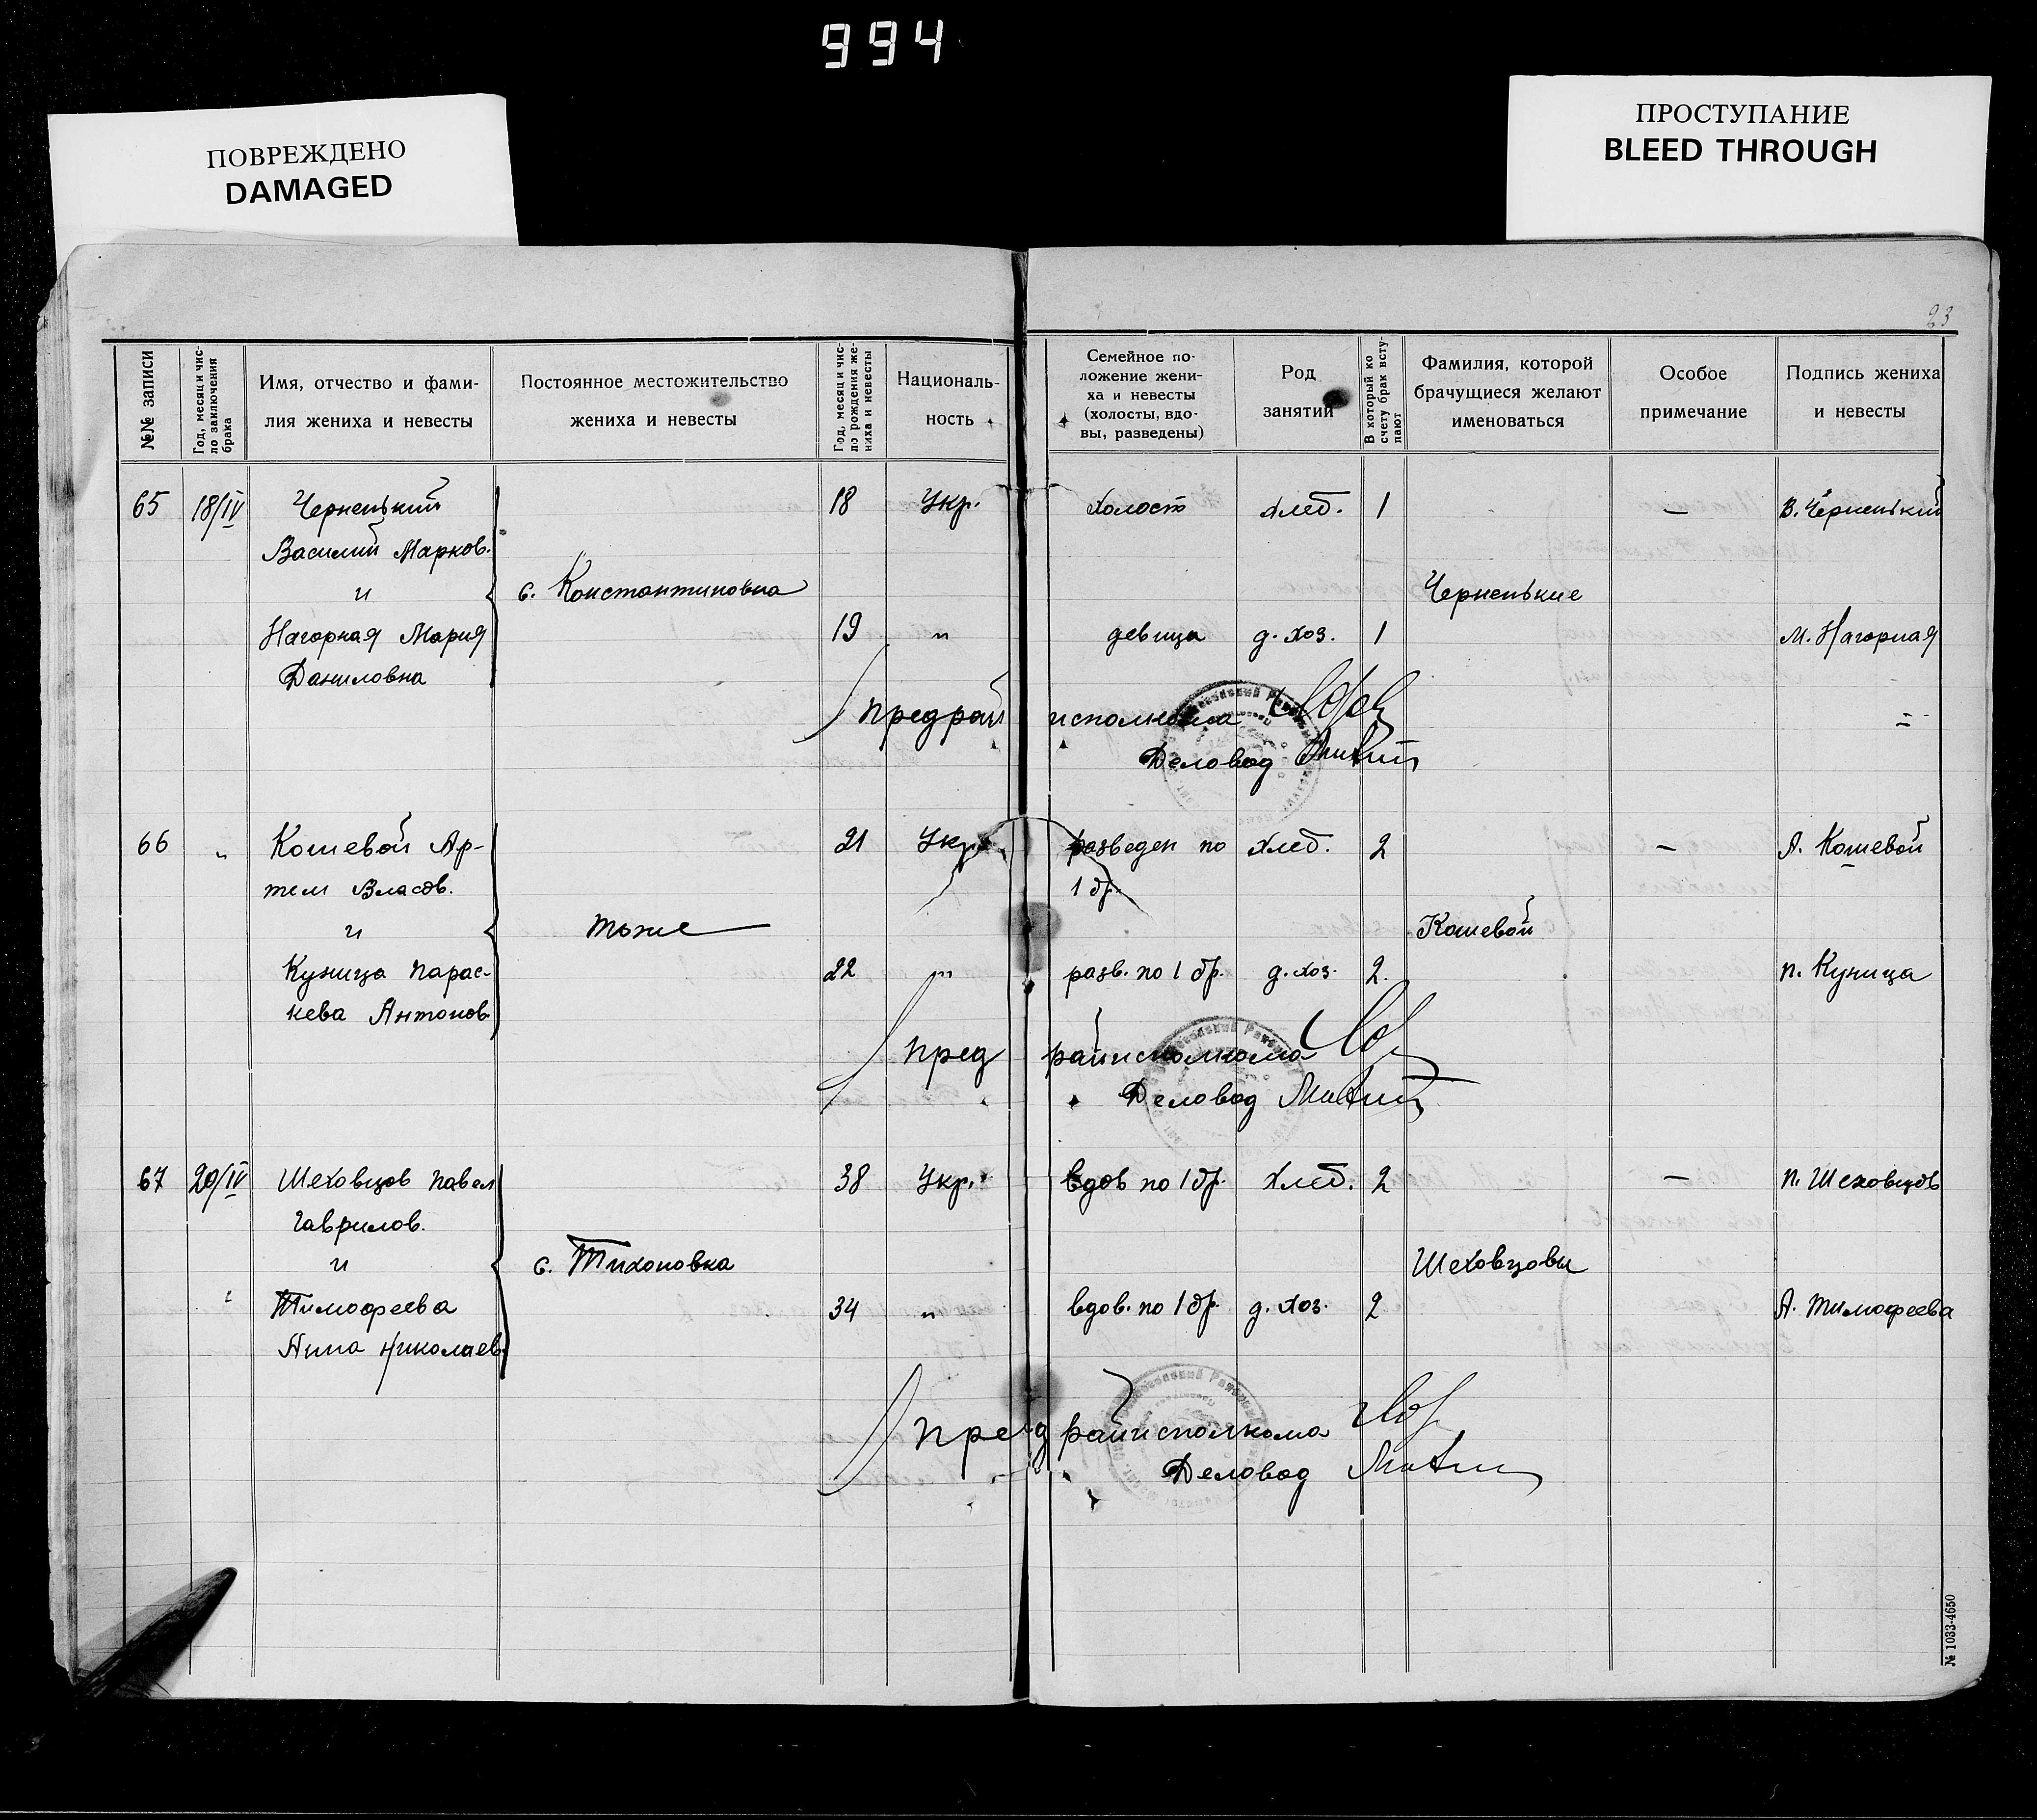 994
ПОВРЕЖДЕНО
DAMAGED
ПРОСТУПАНИЕ
BLEED THROUGH
23
№№ записи
Год, месяц и чис-
ло заключения
брака
Имя, отчество и фами-
лия жениха и невесты
Постоянное местожительство
жениха и невесты
Год, месяц и чис-
ло рождения же-
ниха и невесты
Националь-
ность
Семейное по-
ложение жени-
ха и невесты
(холосты, вдо-
вы, разведены)
Род
занятий
В который ко
счету брак всту-
пают
Фамилия, которой
брачущиеся желают
именоваться
Особое
примечание
Подпись жениха
и невесты
65 18/IV Черненький 18 Укр. холост хлеб. 1 — В. Черненький
Василий Марков.
и с. Константиновка Черненькие
Нагорная Мария 19 " девица д. хоз. 1 М. Нагорная
Даниловна
Предрай исполкома
Деловод
66 " Кошевой Ар- 21 Укр. разведен по хлеб. 2 — А. Кошевой
тем Власов. 1 бр.
и тоже Кошевой
Куница Парас- 22 " разв. по 1 бр. д. хоз. 2. П. Куница
кева Антонов.
Пред райисполкома
Деловод
67 20/IV Шеховцов Павел 38 Укр. вдов по 1 бр. хлеб. 2 — П. Шеховцов
Гаврилов.
и с. Тихоновка Шеховцовы
" Тимофеева 34 " вдов. по 1 бр. д. хоз. 2 А. Тимофеева
Анна Николаев.
Пред райисполкома
Деловод
№ 1033-4650